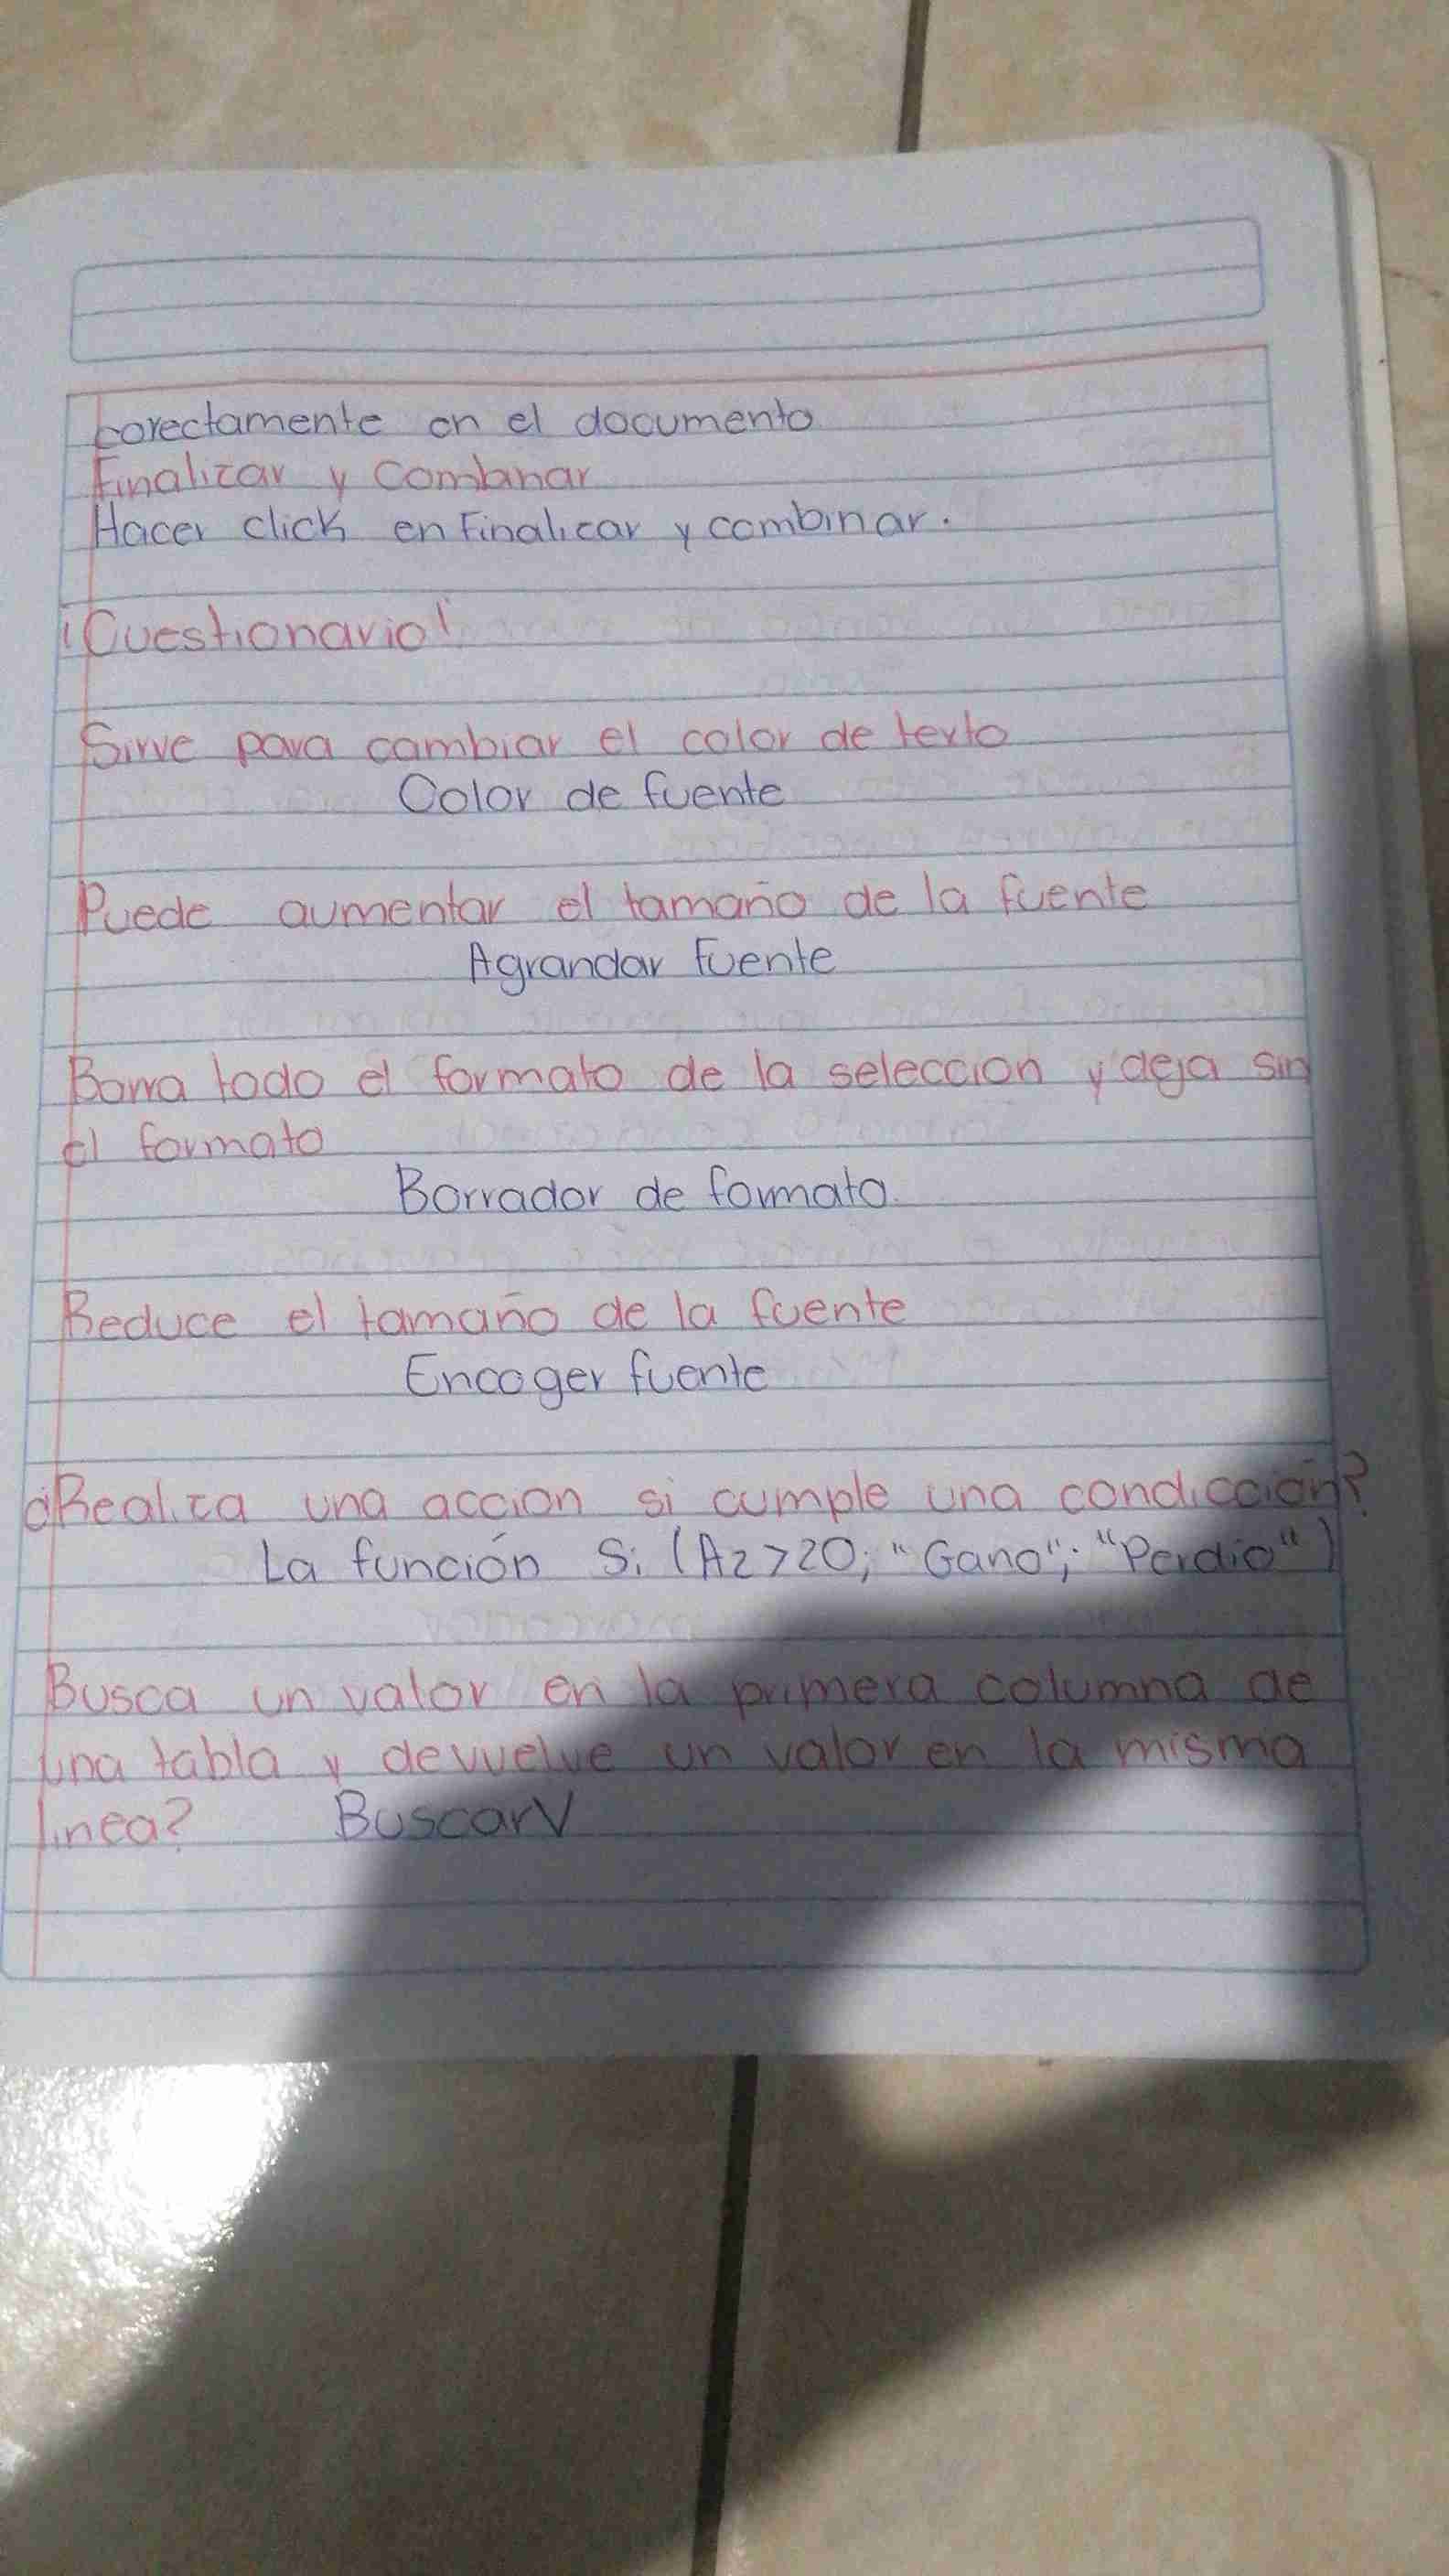 corectamente en el documento
Finalizar y Combinar
Hacer click en Finalicar y combinar.
¡Cuestionario!
Sirve para cambiar el color de texto
Color de fuente
Puede aumentar el tamaño de la fuente
Agrandar Fuente
Borra todo el formato de la seleccion y deja sin
el formato
Borrador de formato.
Reduce el tamaño de la fuente
Encoger fuente
¿Realiza una accion si cumple una condiccion?
La función Si (A2>20; "Gano"; "Perdio")
Busca un valor en la primera columna de
una tabla y devuelve un valor en la misma
linea? BuscarV